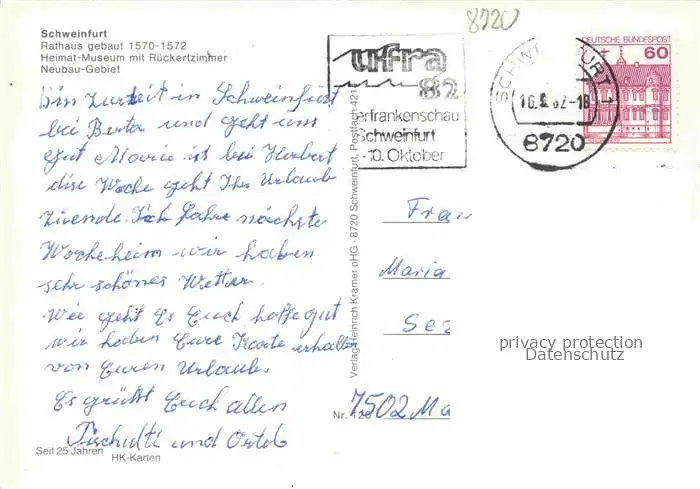 8720
Schweinfurt
Rathaus gebaut 1570-1572
Heimat-Museum mit Rückertzimmer
Neubau-Gebiet
ufra
82
erfrankenschau
Schweinfurt
-10. Oktober
SCHW FURT 1
16. 82-18
8720
DEUTSCHE BUNDESPOST
60
Bin Zurzeit in Schweinfurt
bei Berta und geht uns
gut Marie ist bei Herbert
dise Woche geht Ihr Urlaub
zuende. Ich fahre nächste
Woche heim wir haben
sehr schönes Wetter.
Wie geht Es Euch hoffe gut
wir haben Eure Karte erhalten
von Euren Urlaub.
Es grüßt Euch allen
und
Verlag Heinrich Krämer oHG · 8720 Schweinfurt, Postfach 421
Frau
Maria
Se
Nr. 126
7502 Ma
privacy protection
Datenschutz
Seit 25 Jahren
HK-Karten